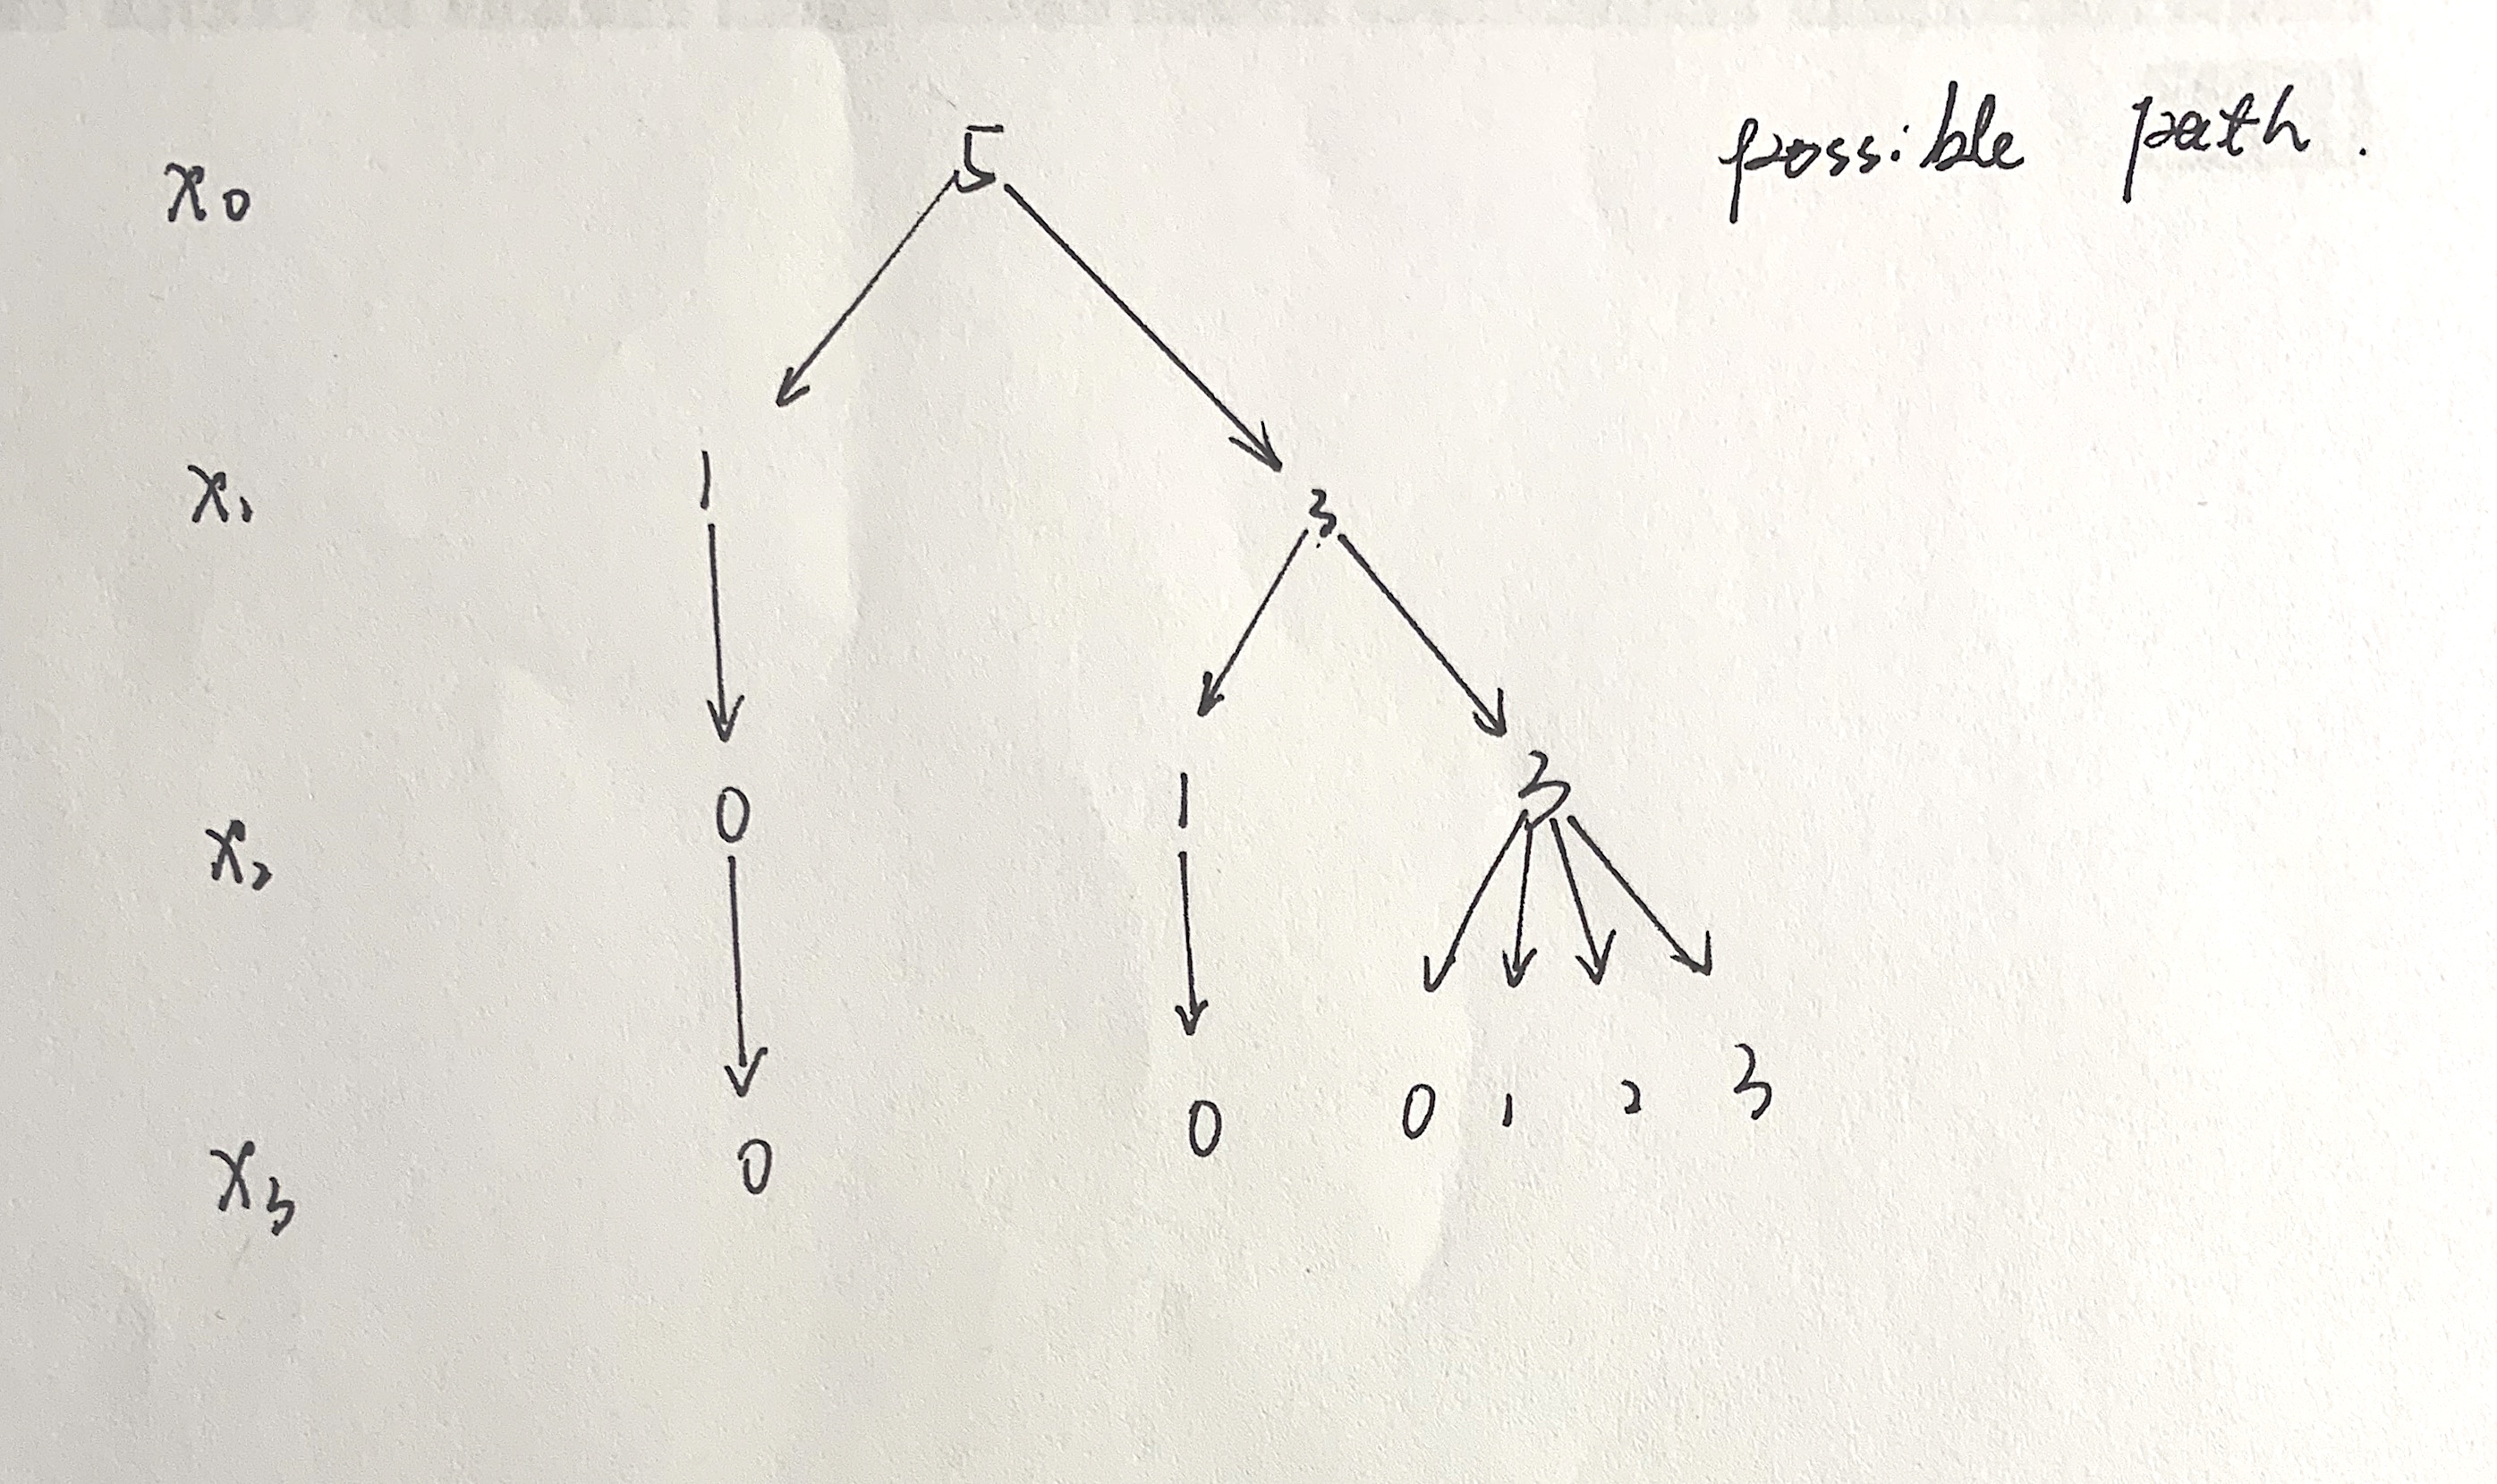 possible path.
x₀ 5
x₁ 1 3
x₂ 0 1 3
x₃ 0 0 0 1 2 3